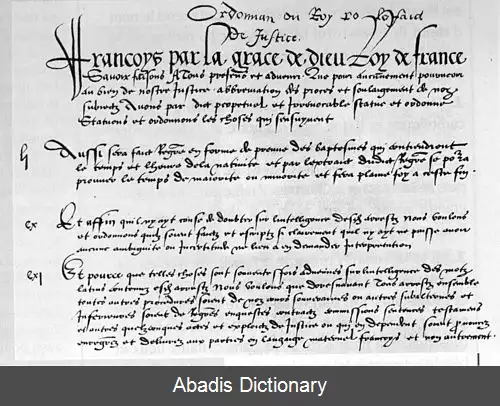 Ordonnan du Roy
De Justice.
Francoys par la grace de dieu Roy de france
Savoir faisons A tous presens et advenir Que pour aucunement pourveoir
au bien de nostre Justice abbreviation des proces et soulagement de noz
subiectz Avons par edict perpetuel et irrevocable statue et ordonne
Statuons et ordonnons les choses qui sensuyvent
lj Aussi sera faict Regre en forme de preuve des baptesmes qui contiendront
le temps et lheure dela nativite et par lextraict dudict Regre se po ra
prouver le temps de maiorite ou minorite et fera plaine foy a ceste fin
cx Et affin quil ny ayt cause de doubter sur lintelligence desd arrestz Nous voulons
et ordonnons quilz soient faictz et escriptz si clairement quil ny ayt ne puisse avoir
aucune ambiguite ou incertitude ne lieu a en demander interpretation
cxj Et pource que telles choses sont souventesfois advenues sur lintelligence des motz
latins contenuz esd arrestz Nous voulons que doresnavant Tous arrestz ensemble
toutes autres procedures soient de noz cours souveraines ou autres subalternes et
inferieures soient de Regres enquestes contractz commissions sentences testamens
et autres quelzconques actes et exploictz de Justice ou qui en dependent soient prononcez
enregrez et delivrez aux parties en langaige maternel francoys et non autrement.
Abadis Dictionary